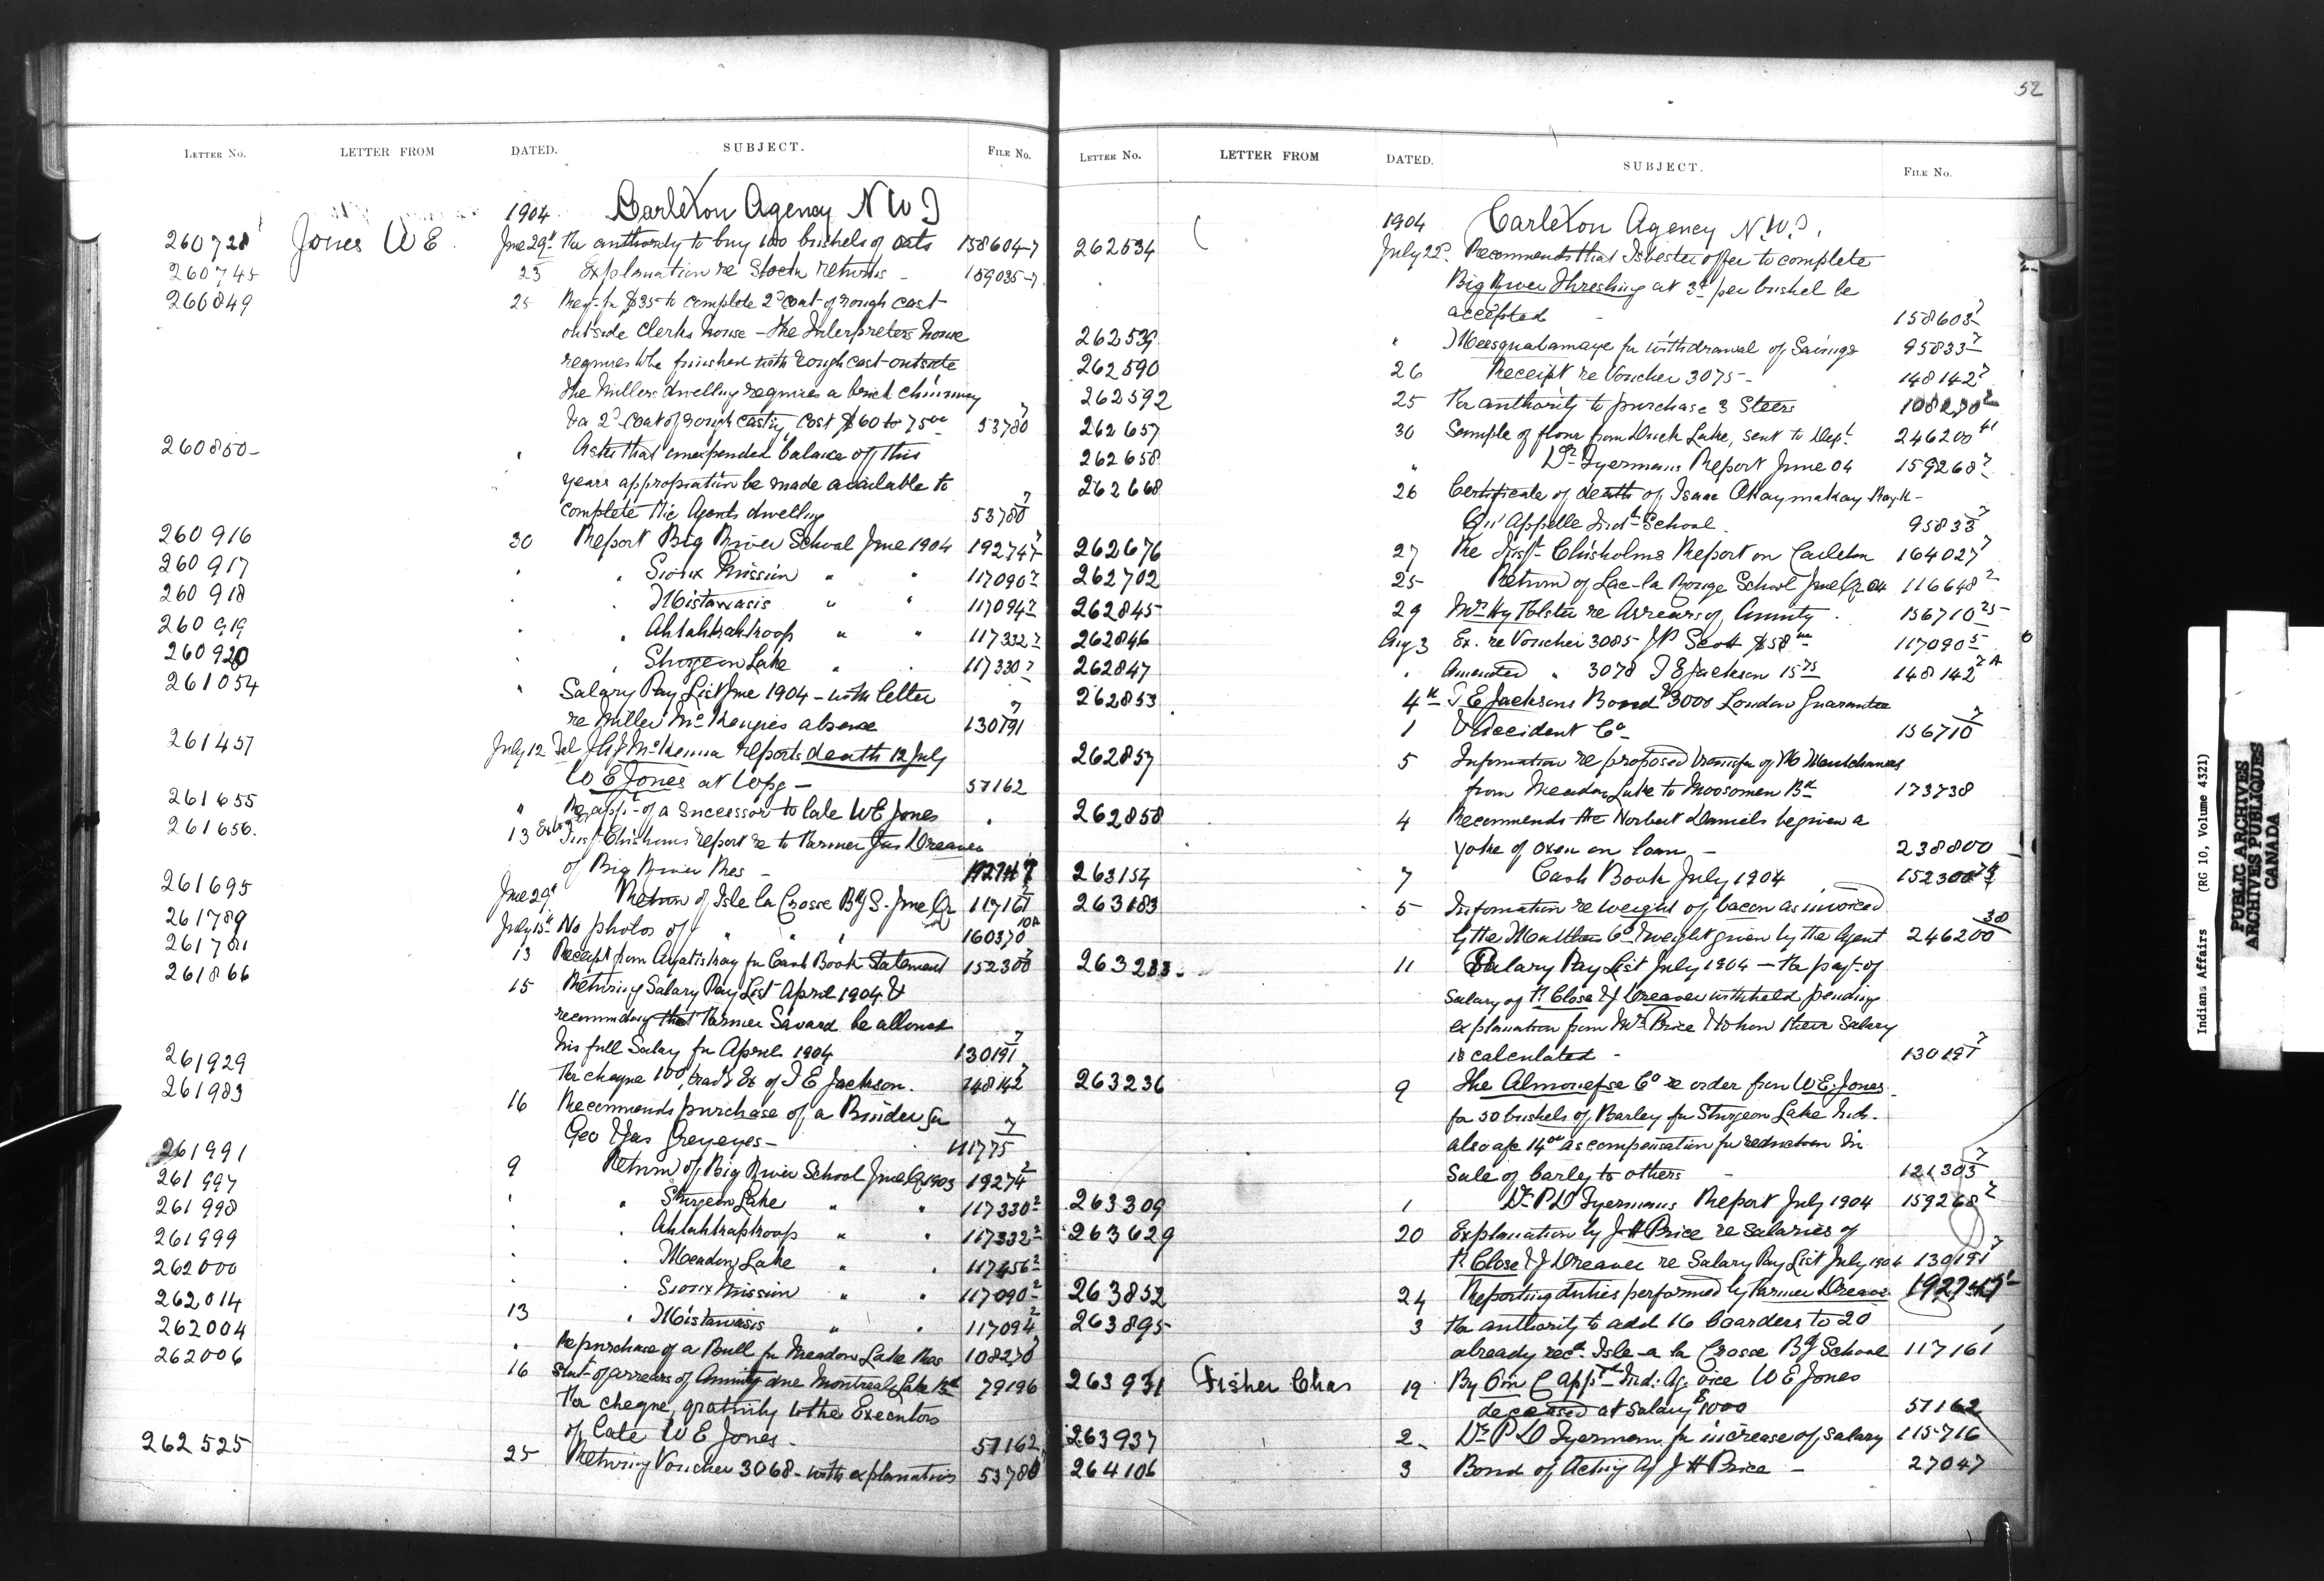 52
LETTER NO. LETTER FROM DATED. SUBJECT. FILE NO.
1904 Carleton Agency N W T
260728 Jones W E June 29th For authority to buy 100 bushels of oats 158604-7
260745 23 Explanation re Stock returns - 159035-7
260849 25 Req. for $35 to complete 2d coat of rough cast
outside Clerks house - the Interpreters house
requires to be finished with rough cast outside
the Millers dwelling requires a brick chimney
& a 2d coat of rough casting, cost $60 to 75.00 53780 7
260850 " Asks that unexpended balance of this
years appropriation be made available to
complete the Agents dwelling 53780 7
260916 30 Report Big River School June 1904 192747
260917 " " Sioux Mission " " 117090 2
260918 " " Mistawasis " " 117094 2
260919 " " Ahtahkahkoop " " 117332 2
260920 " " Sturgeon Lake " " 117330 2
261054 " Salary Pay List June 1904 - with letter
re Miller McKenzies absence 130191 7
261457 July 12 Tel J A J McKenna reports death 12 July
W E Jones at Wpg - 57162
261655 " Re appt. of a successor to late W E Jones "
261656 13 Insp. Chisholms report re to Farmer Jas Dreaver
of Big River Res - 192747
261695 June 29th Return of Isle la Crosse Bdg S. June Qr 117161 2
261789 July 15th No photos of " " " 160370 10A
261781 13 Receipt from Ayatiskay for Cash Book Statement 152300 7
261866 15 Returning Salary Pay List April 1904 &
recommending that Farmer Savard be allowed
his full Salary for April 1904 130191 7
261929 For cheque 100, trad'r Ex of T E Jackson. 148142 7
261983 16 Recommends purchase of a Binder for
Geo & Jas Greyeyes - 111775 7
261991 9 Return of Big River School June Qr 1903 19274 2
261997 " " Sturgeon Lake " " 117330 2
261998 " " Ahtahkahkoop " " 117332 2
261999 " " Meadow Lake " " 117456 2
262000 " " Sioux Mission " " 117090 2
262014 13 " Mistawasis " " 117094 2
262004 " Re purchase of a Bull for Meadow Lake Res 108270 7
262006 16 Stat. of arrears of Annuity due Montreal Lake Bd 79196
For cheque, gratuity to the Executors
of Late W E Jones. 57162
262525 25 Returning Voucher 3068 - with explanation 53780
LETTER NO. LETTER FROM DATED. SUBJECT. FILE NO.
1904 Carleton Agency N.W.T.
262534 July 22d Recommends that Isbester offer to complete
Big River Threshing at 3c per bushel be
accepted - 158605 7
262539 " Meesquatamaye for withdrawal of Savings 95833 7
262590 26 Receipt re Voucher 3075 - 148142 7
262592 25 For authority to purchase 3 Steers 108270 2
262657 30 Sample of flour from Duck Lake, sent to Dept. 246200 41
262658 " Dr. Tyermans Report June 04 159268 2
262668 26 Certificate of death of Isaac Akaymakay
Qu'Appelle Indl School. 95833 7
262676 27 Re Inspr. Chisholms Report on Carleton 164027 7
262702 25 Return of Lac-la Ronge School June Qr 04 116648 2
262845 29 Mrs Hy Holster re Arrears of Annuity. 156710 25
262846 Aug 3 Ex. re Voucher 3085 J P Scott $58.00 - 117090 5
262847 " Amended " 3078 T E Jackson 15.75 148142 7A
262853 4th T E Jacksons Bond $3000 London Guarantee
1 & Accident Co 156710 7
262857 5 Information re proposed transfer of
from Meadow Lake to Moosomin Bd 173738
262858 4 Recommends the Norbert Daniels be given a
yoke of oxen on loan - 238800
263154 7 Cash Book July 1904 152300 7A
263183 5 Information re weight of bacon as invoiced
by the Matthews Co & weight given by the Agent 246200 38
263233 11 Salary Pay List July 1904 - the payt. of
Salary of P. Close & J Dreaver withheld pending
explanation from Mr. Price & to how their Salary
is calculated - 130191 7
263236 9 The Almonefse Co re order from W E Jones
for 50 bushels of Barley for Sturgeon Lake Inds.
also afc 14.00 as compensation for reduction in
Sale of barley to others - 121303 7
263309 1 Dr P D Tyermans Report July 1904 159268 2
263629 20 Explanation by J H Price re Salaries of
P. Close & J Dreaver re Salary Pay List July 1904 130191 7
263852 24 Reporting duties performed by Farmer Dreaver 192747
263895 3 For authority to add 16 boarders to 20
already recd. Isle-a la Crosse Bdg School 117161 1
263931 Fisher Chas 19 By O in C appt Ind: Ag. vice W E Jones
deceased at salary $1000 57162
263937 2 Dr P D Tyerman for increase of salary 115716
264106 3 Bond of Acting Ag J H Price - 27047
Indians Affairs (RG 10, Volume 4321)
PUBLIC ARCHIVES
ARCHIVES PUBLIQUES
CANADA